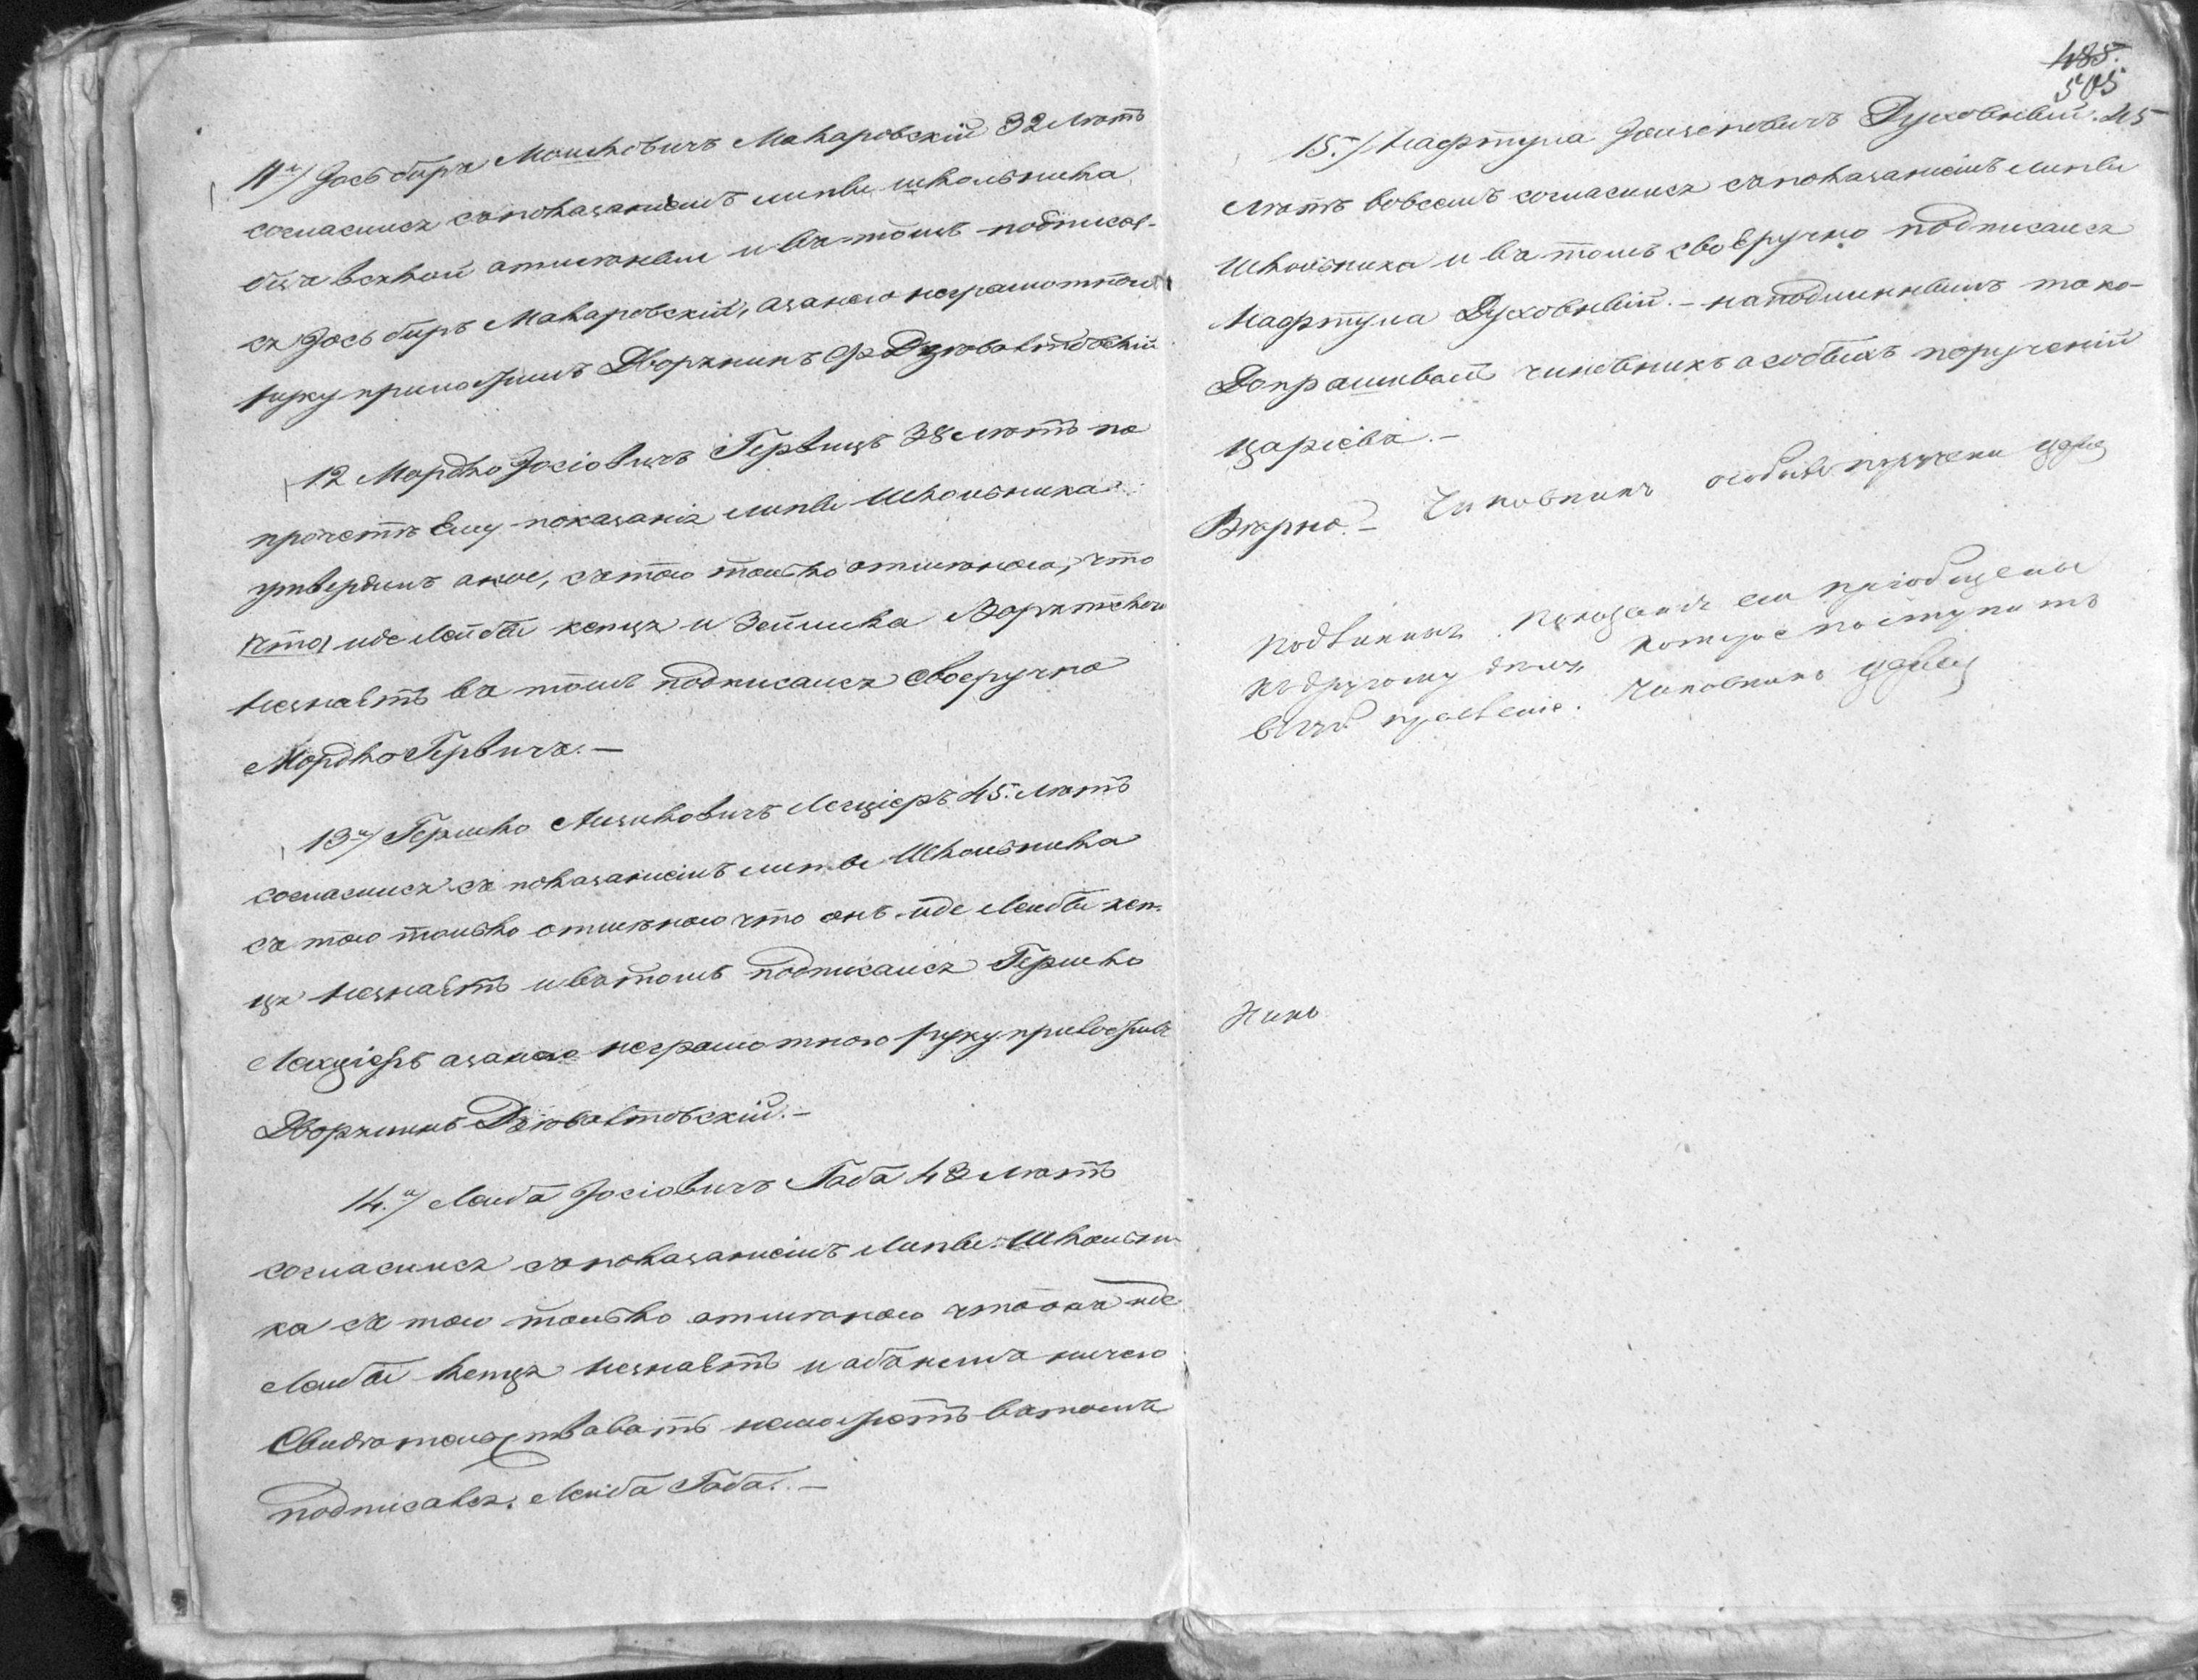 488.
505
11й/ Іось беръ Мошковичъ Макаровскій 32 лѣтъ
согласился съ показаніемъ липы школьника
безъ всякой отмѣны и въ томъ подписал-
ся Іось беръ Макаровскій, а за него неграмотного
руку приложилъ Дворянинъ
12 Мордко Іосіовичъ Гервицъ 38 лѣтъ по
прочетѣ Ему показанія липы Школьника
утвердилъ оное, съ тою только отмѣною, что
что иде Лейбы кепця и Зейлика
незнаетъ въ томъ подписался своеручно
Мордко Гервичъ. —
13й/ Гершко Лизиковичъ 45 лѣтъ
согласился съ показаніемъ липы Школьника
съ тою только отмѣною что онъ иде Лейбы кеп-
ця незнаетъ и въ томъ подписался Гершко
а за него неграмотного руку приложилъ
Дворянинъ
14.й/ Лейба Іосіовичъ Габа 43 лѣтъ
согласился съ показаніемъ Липы Школьни-
ка съ тою только отмѣною что онъ иде
Лейбы кепця незнаетъ и объ немъ ничего
Свидѣтельствовать неможетъ въ томъ
подписался. Лейба Габа. —
15./ Нафтула Духовный. 45
лѣтъ во всемъ согласился съ показаніемъ липы
Школьника и въ томъ своеручно подписался
Нафтула Духовный. — на подлинномъ тако-
Допрашивалъ чиновникъ особыхъ порученій
—
Вѣрно. — Чиновникъ особыхъ порученій
Подлинныя показанія сіи пріобщены
къ другому дѣлу, которое поступитъ
правленіе. Чиновникъ